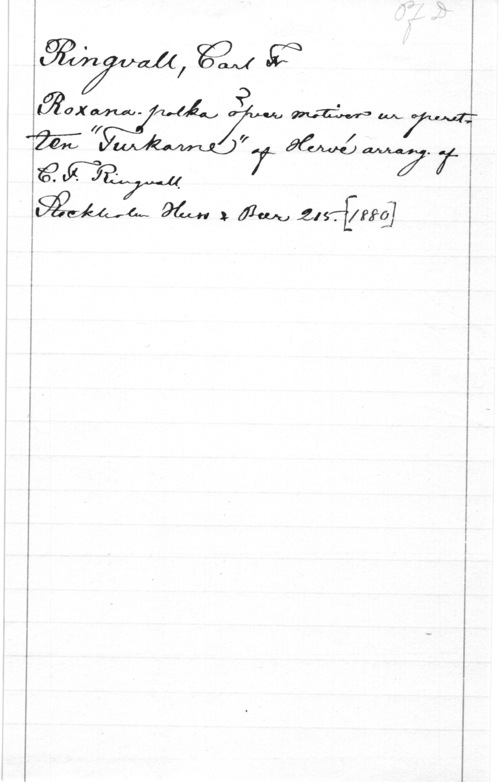 Pf D
Ringvall, Carl Fr
Roxana-polka öfver motiver ur operet-
ten "Turkarne" af Hervé arrang. af
C. F. Ringvall
Stockholm Huss & Beer 215. [1880]